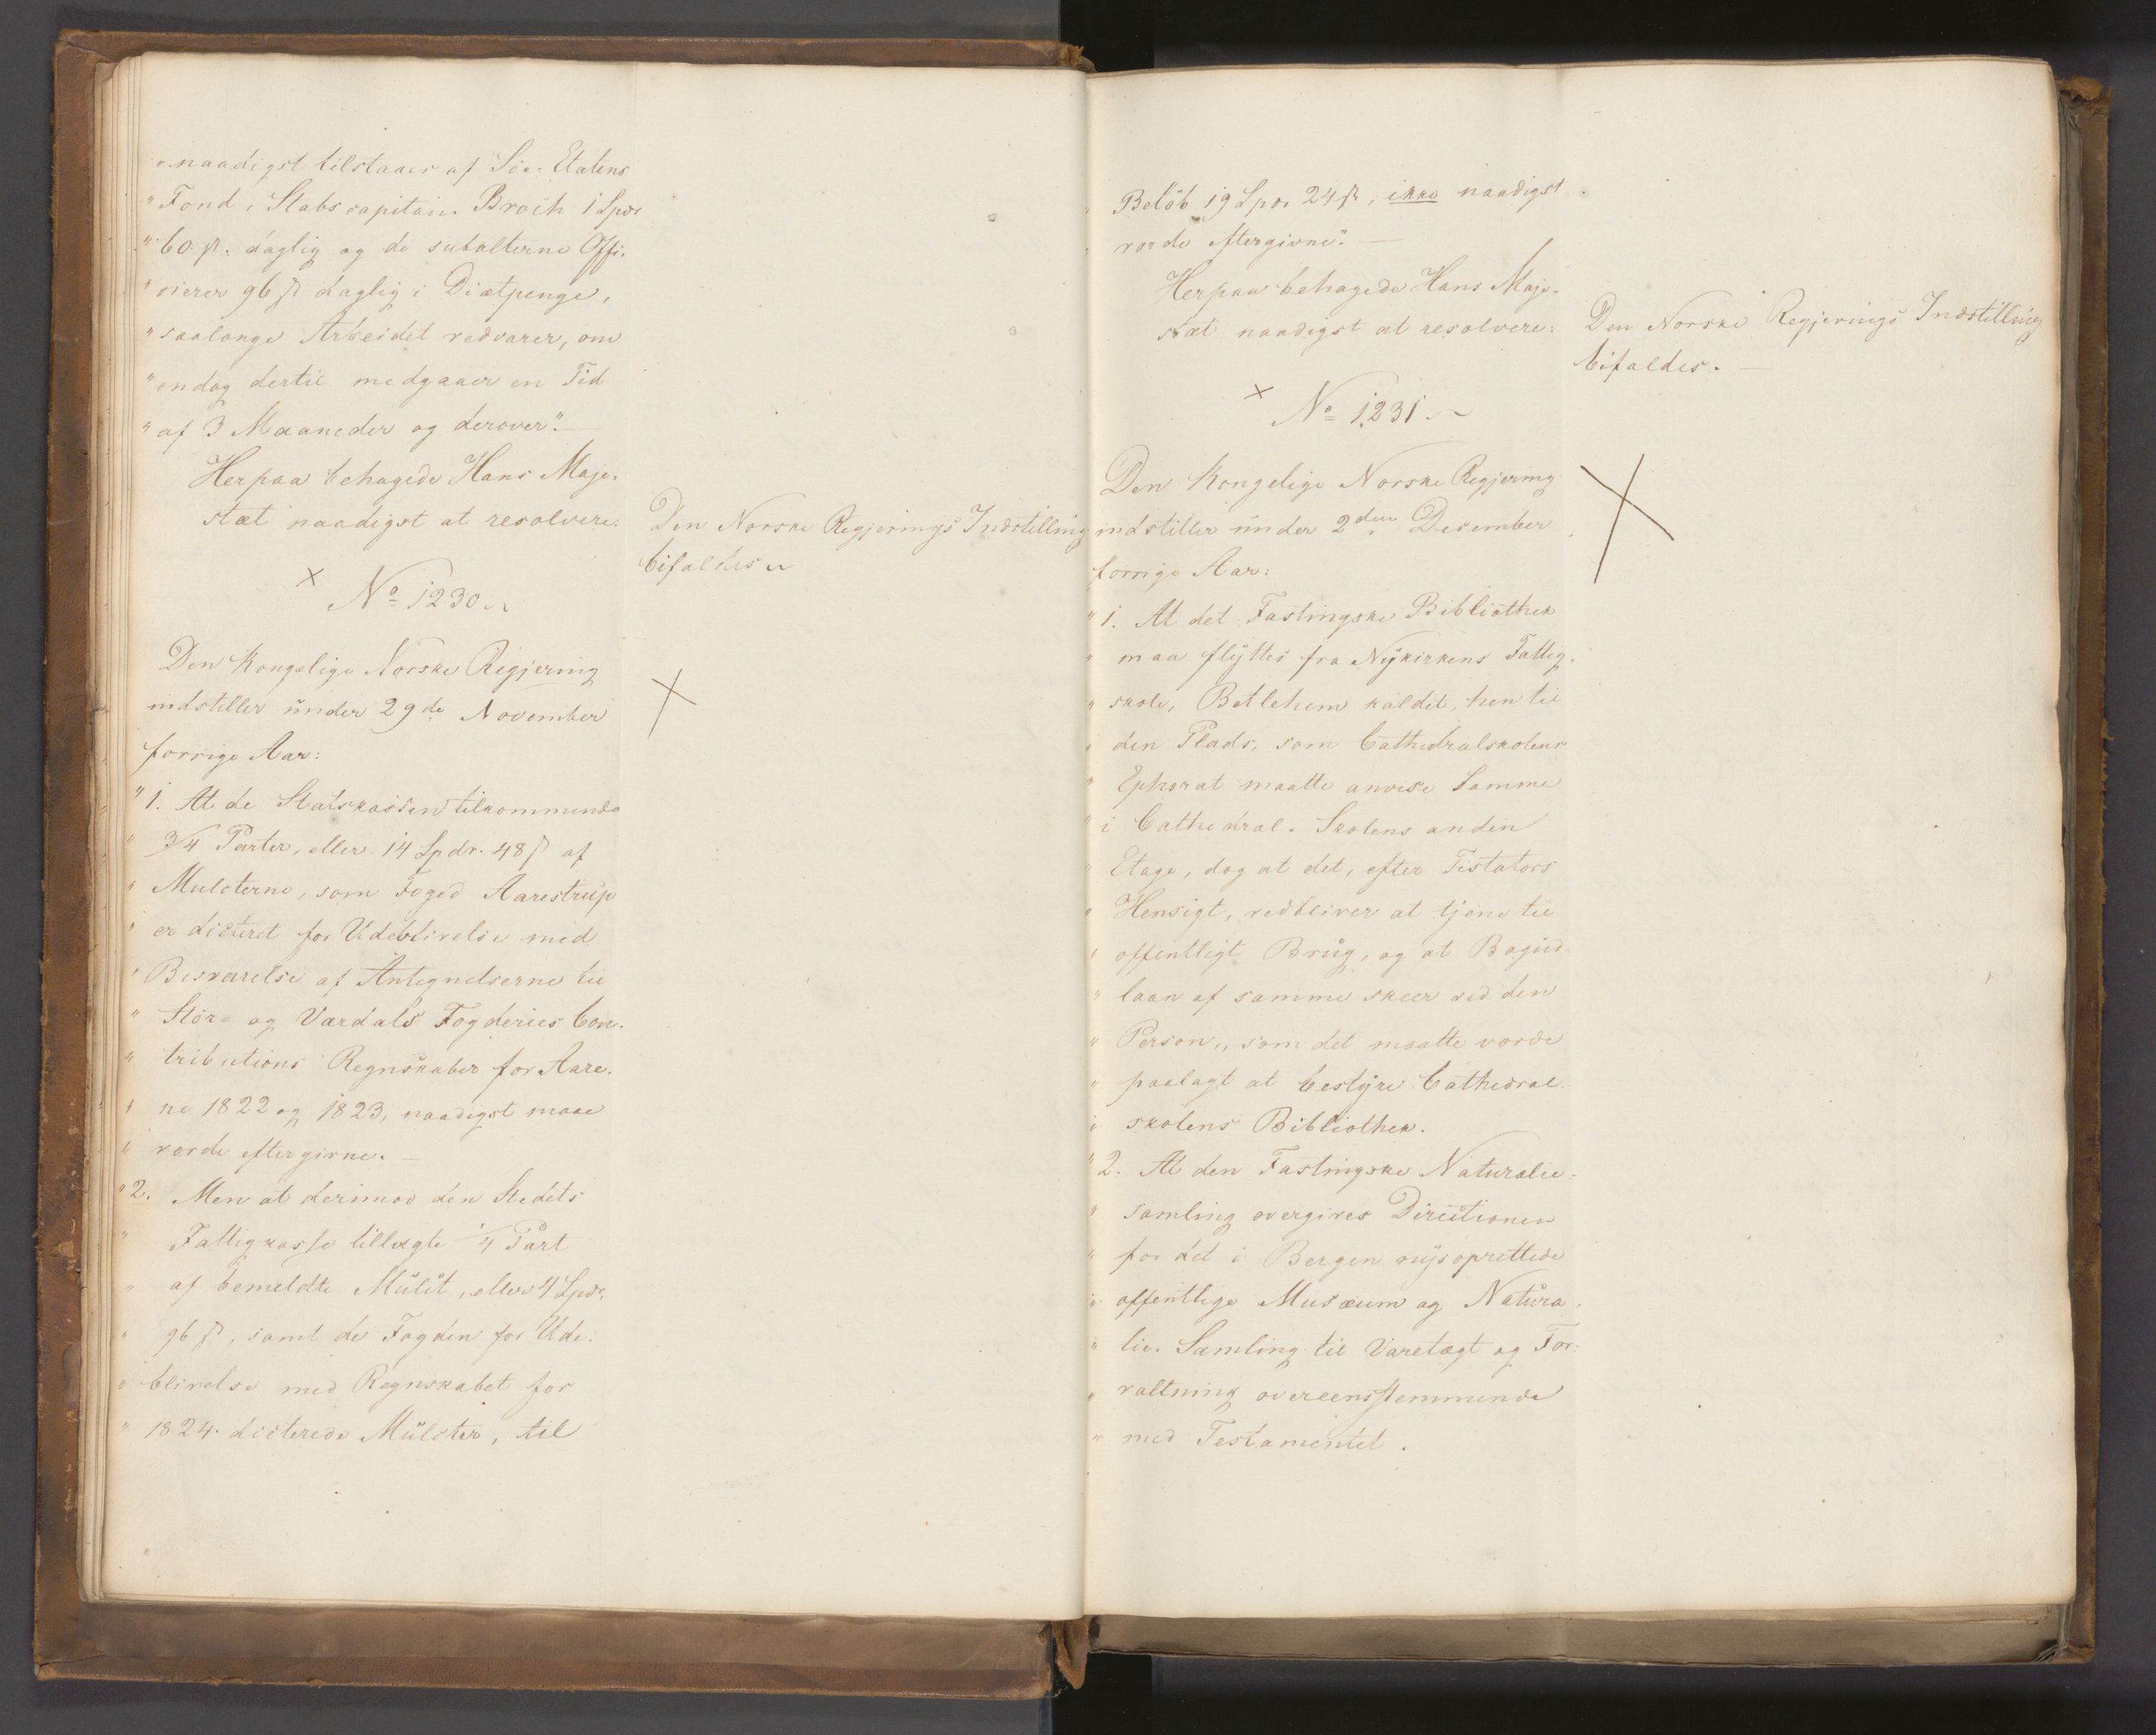 "naadigst tilstaaes af Söe-Etatens
"Fond, Stabscapitain Broch 1 Spdr
"60 ß. daglig og de subalterne Offi-
"cierer 96 ß daglig i Diætpenge,
"saalænge Arbeidet vedvarer, om
"endog dertil medgaaer en Tid
"af 3 Maaneder og derover".
Herpaa behagede Hans Maje-
stæt naadigst at resolvere:
Den Norske Regjerings Indstilling
bifaldes.
× No 1230
Den Kongelige Norske Regjering
indstiller under 29de November
forrige Aar:
"1. At de Statskassen tilkommende
" 3/4 Parter, eller 14 Spdr. 48 ß af
" Mulcterne, som Foged Aarestrup
" er dicteret for Udeblivelse med
" Besvarelse af Antegnelserne til
" Stör- og Værdals Fogderies Con-
" tributions Regnskaber for Aare-
" ne 1822 og 1823, naadigst maae
" vorde eftergivne.
"2. Men at derimod den Stedets
" Fattigkasse tillagte 1/4 Part
" af bemeldte Mulct, eller 4 Spdr.
" 96 ß, samt de Fogden for Ude-
" blivelse med Regnskabet for
" 1824 dicterede Mulcter, til
" Belöb 19 Spdr 24 ß, ikke naadigst
" vorde eftergivne".
Herpaa behagede Hans Maje-
stæt naadigst at resolvere:
Den Norske Regjerings Indstilling
bifaldes.
× No 1231
Den Kongelige Norske Regjering
indstiller under 2den December
forrige Aar:
"1. At det Fastingske Bibliothek
" maa flyttes fra Nykirkens Fattig-
" skole, Betlehem kaldet, hen til
" den Plads, som Cathedralskolens
" Ephorat maatte anvise Samme
" i Cathedral-Skolens anden
" Etage, dog at det, efter Testators
" Hensigt, vedbliver at tjene til
" offentligt Brug, og at Bogud-
" laan af samme skeer ved den
" Person, som det maatte vorde
" paalagt at bestyre Cathedral-
" skolens Bibliothek.
"2. At den Fastingske Naturalie-
" samling overgives Directionen
" for det i Bergen nysoprettede
" offentlige Musæum og Natura-
" lie-Samling til Varetægt og For-
" valtning overeensstemmende
" med Testamentet.